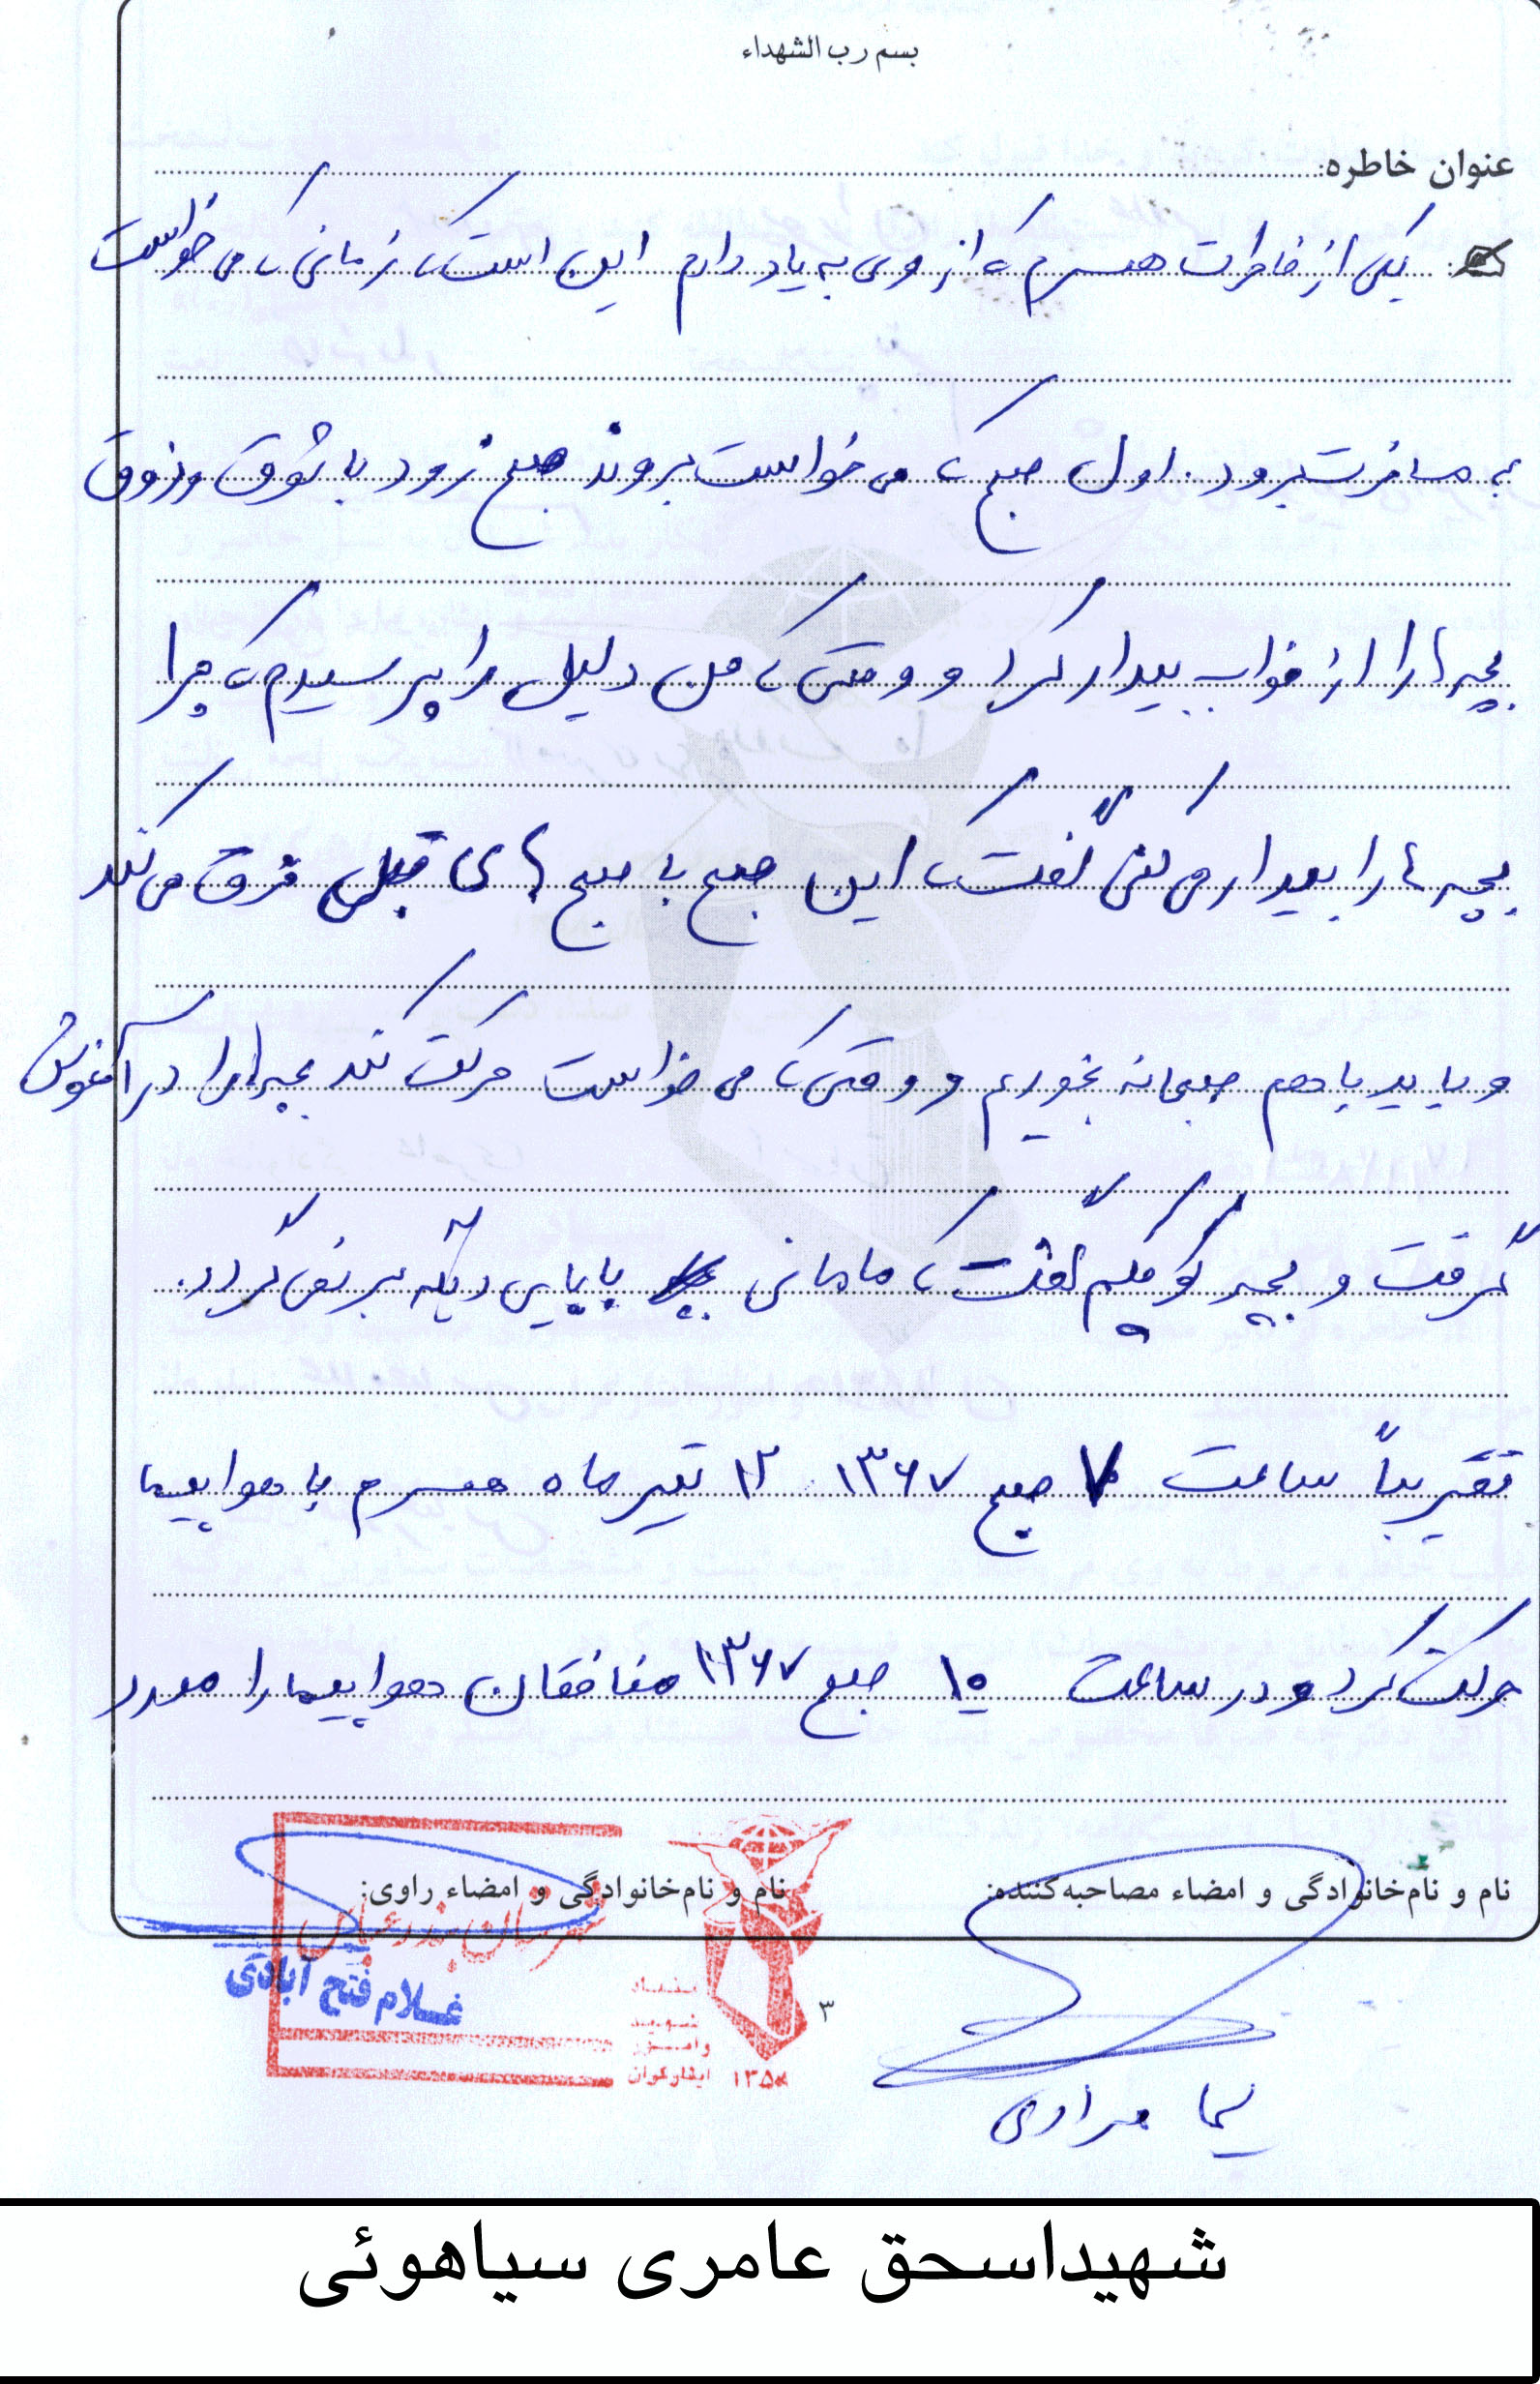 بسم رب الشهداء
عنوان خاطره:
یکی از خاطرات همسرم که از وی به یاد دارم این است که زمانی که می خواست
به مسافرت برود. اول صبح که می خواست بروند صبح زود با شوق و ذوق
بچه ها را از خواب بیدار کرد و وقتی که من دلیل را پرسیدم که چرا
بچه ها را بیدار می کنی گفت که این صبح با صبح های قبلی فرق می کند
و باید با هم صبحانه بخوریم و وقتی که می خواست حرکت کند بچه ها را در آغوش
گرفت و بچه کوچکم گفت که مامانی بابایی دیگه بر نمی گردد.
تقریباً ساعت ۷ صبح ۱۳۶۷ ۱۲ تیر ماه همسرم با هواپیما
حرکت کرد و در ساعت ۱۰ صبح ۱۳۶۷ منافقان هواپیما را مورد
نام و نام‌خانوادگی و امضاء مصاحبه‌کننده:
نام و نام‌خانوادگی و امضاء راوی:
غلام فتح آبادی
بنیاد
شهید
و امور
ایثارگران
۱۳۵۸
۳
مرادی
شهیداسحق عامری سیاهوئی